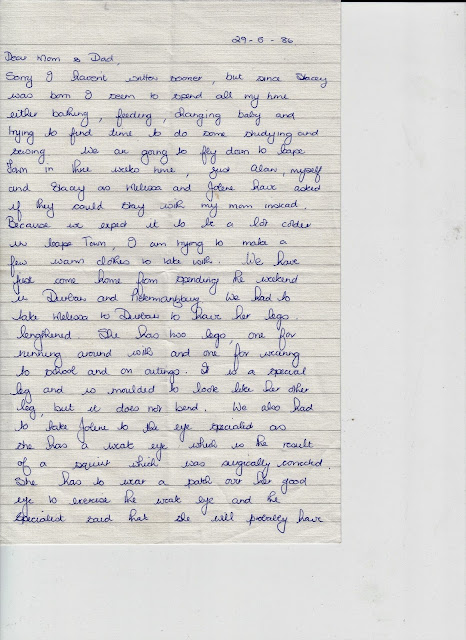 29-5-86
Dear Mom & Dad,
Sorry I havent written sooner, but since Stacey
was born I seem to spend all my time
either bathing, feeding, changing baby and
trying to find time to do some studying and
sewing. We are going to fly down to Cape
Town in three weeks time, just Alan, myself
and Stacey as Melissa and Jolene have asked
if they could stay with my mom instead.
Because we expect it to be a lot colder
in Cape Town, I am trying to make a
few warm clothes to take with. We have
just come home from spending the weekend
in Durban and Pietermaritzburg. We had to
take Melissa to Durban to have her legs
lengthened. She has two legs, one for
running around with and one for wearing
to school and on outings. It is a special
leg and is moulded to look like her other
leg, but it does not bend. We also had
to take Jolene to the eye specialist as
she has a weak eye which is the result
of a squint which was surgically corrected.
She has to wear a patch over her good
eye to exercise the weak eye and the
specialist said that she will probally have